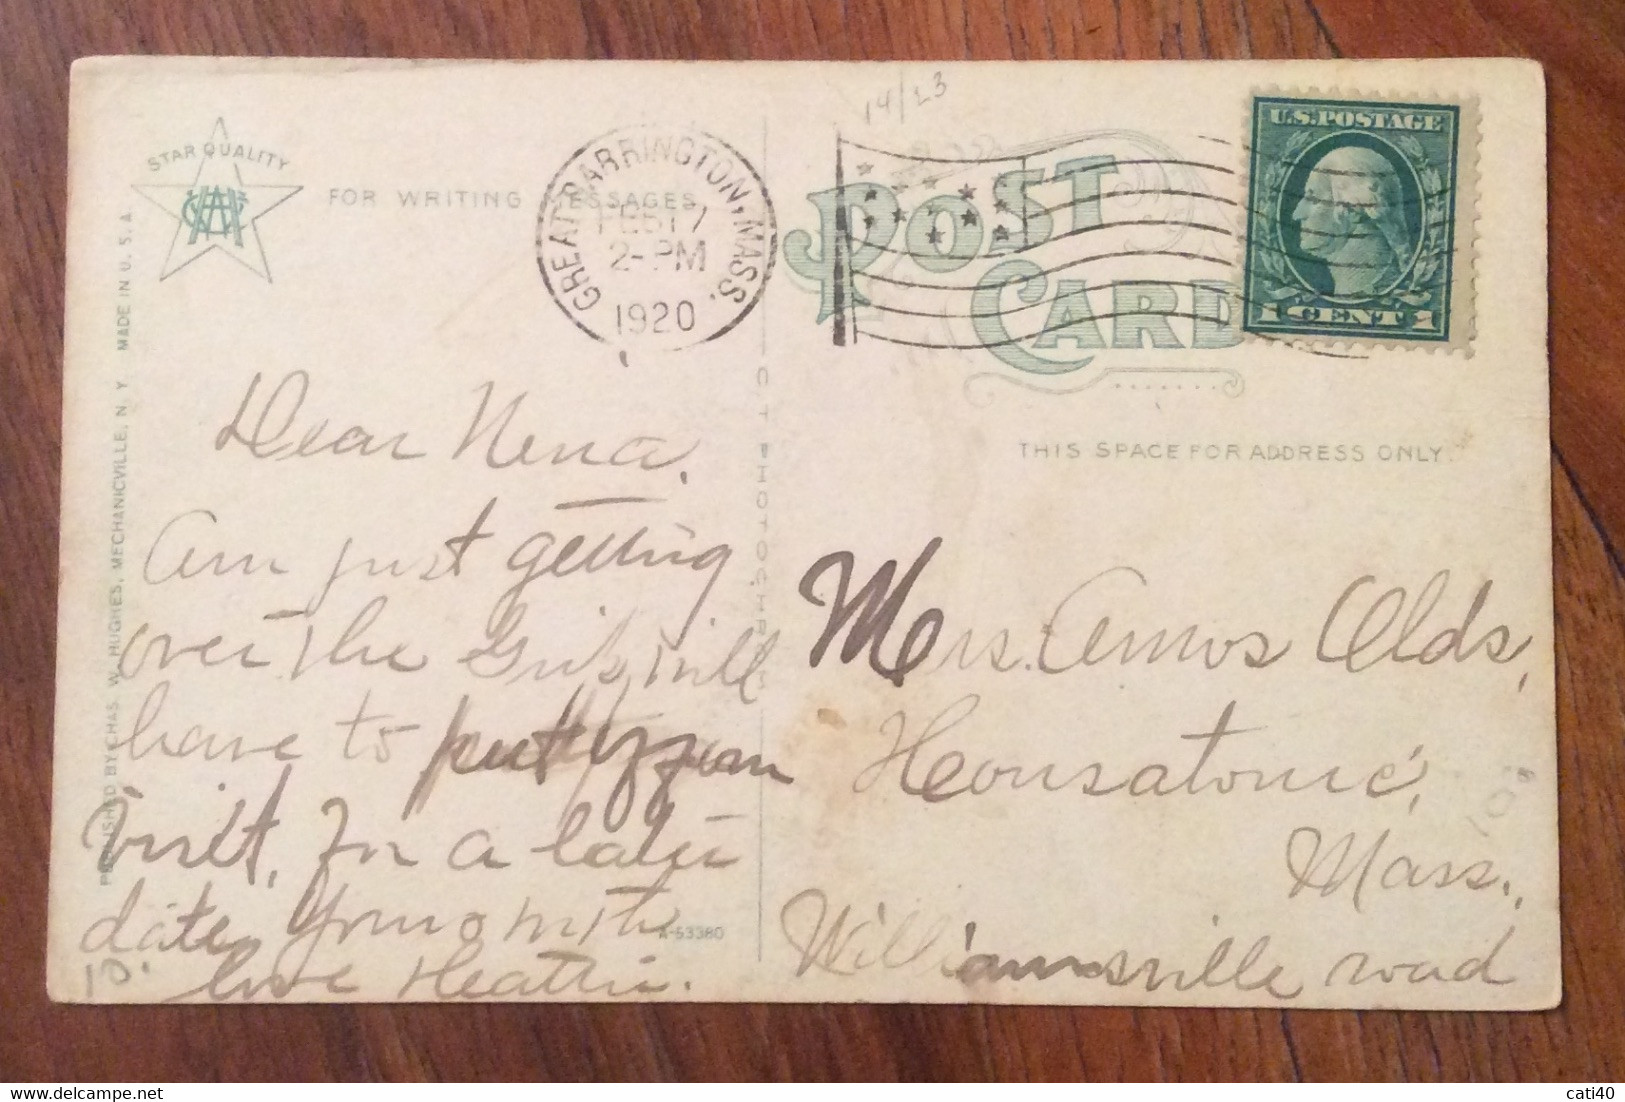 14/23
STAR QUALITY
FOR WRITING MESSAGES
GREAT BARRINGTON, MASS.
FEB 17
2-PM
1920
POST
CARD
U.S. POSTAGE
1 CENT 1
THIS SPACE FOR ADDRESS ONLY.
PUBLISHED BY CHAS. W. HUGHES, MECHANICVILLE, N. Y. MADE IN U. S. A.
C T PHOTOCHROM
Dear Nena,
Am just getting
over the Grip, will
have to put off
visit, for a later
date, Yours with
love Hattie.
A-53380
Mrs. Amos Olds,
Housatonic,
Mass.,
Williamsville road
cati40